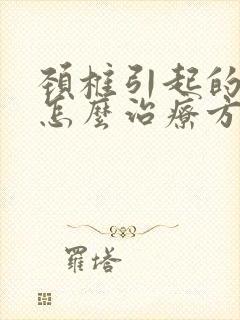 頚椎引起的
怎麼治療方
羅塔